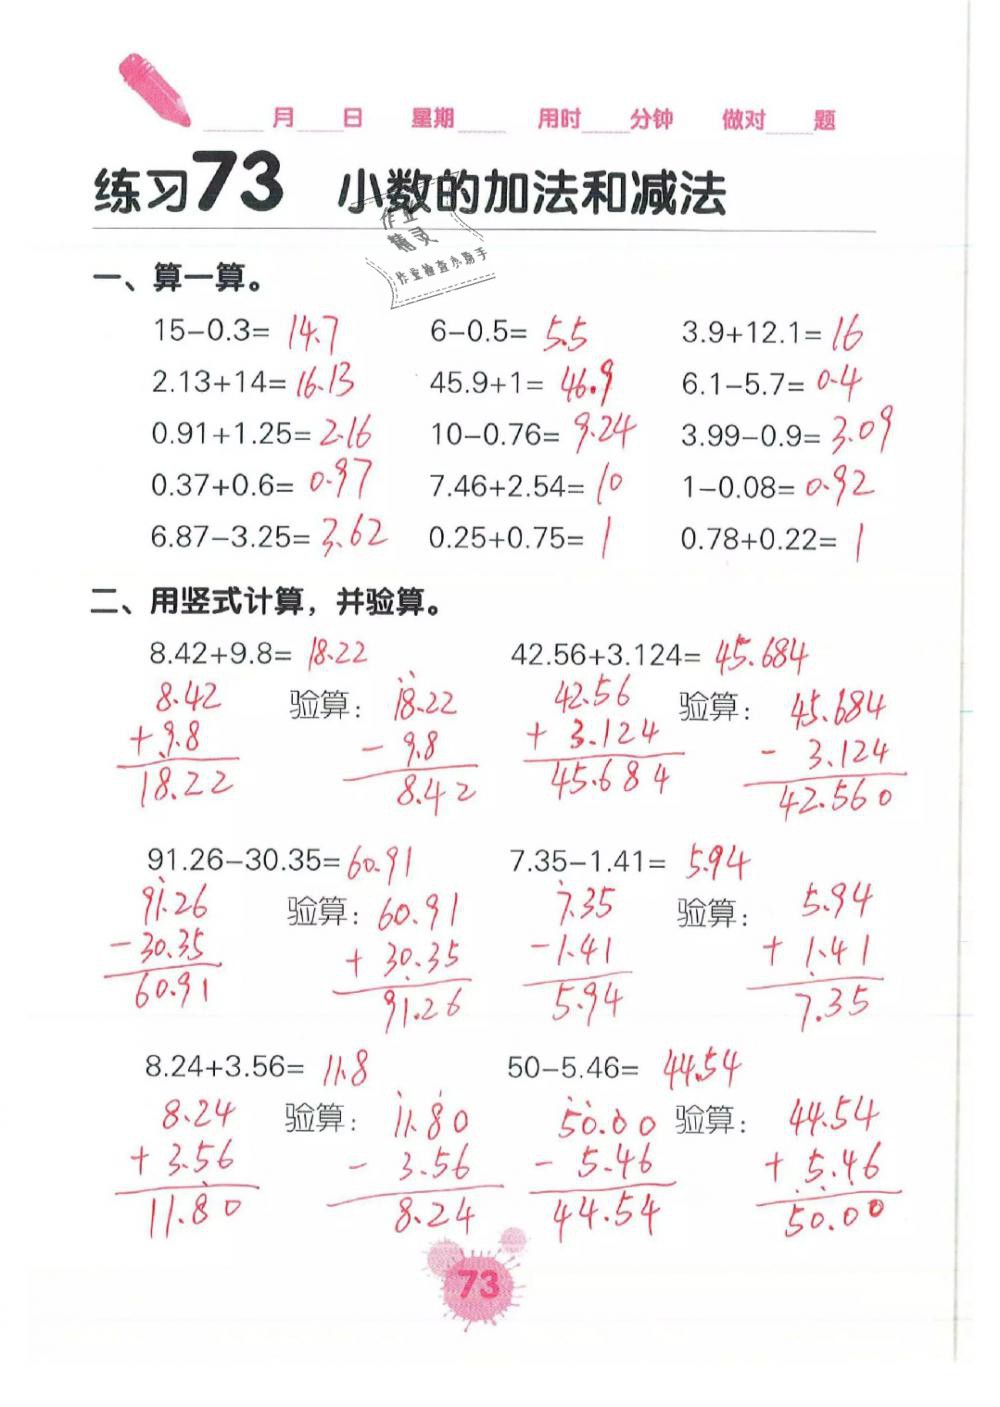 月 日 星期 用时 分钟 做对 题
练习73 小数的加法和减法
作业
精灵
作业检查小助手
一、算一算。
15-0.3= 14.7 6-0.5= 5.5 3.9+12.1= 16
2.13+14= 16.13 45.9+1= 46.9 6.1-5.7= 0.4
0.91+1.25= 2.16 10-0.76= 9.24 3.99-0.9= 3.09
0.37+0.6= 0.97 7.46+2.54= 10 1-0.08= 0.92
6.87-3.25= 3.62 0.25+0.75= 1 0.78+0.22= 1
二、用竖式计算，并验算。
8.42+9.8= 18.22 42.56+3.124= 45.684
8.42 验算: 18.22 42.56 验算: 45.684
+ 9.8 - 9.8 + 3.124 - 3.124
18.22 8.42 45.684 42.560
91.26-30.35= 60.91 7.35-1.41= 5.94
91.26 验算: 60.91 7.35 验算: 5.94
- 30.35 + 30.35 - 1.41 + 1.41
60.91 91.26 5.94 7.35
8.24+3.56= 11.8 50-5.46= 44.54
8.24 验算: 11.80 50.00 验算: 44.54
+ 3.56 - 3.56 - 5.46 + 5.46
11.80 8.24 44.54 50.00
73